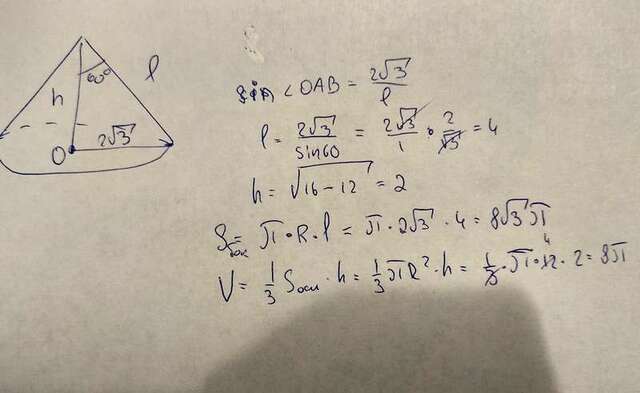 60°
l
h
2√3
O
sin ∠OAB = 2√3/l
l = 2√3/sin60 = 2√3/1 · 2/√3 = 4
h = √16-12 = 2
Sбок = π·R·l = π·2√3·4 = 8√3π
V = 1/3 Sосн·h = 1/3 πR²·h = 1/3·π·12·2 = 8π
4